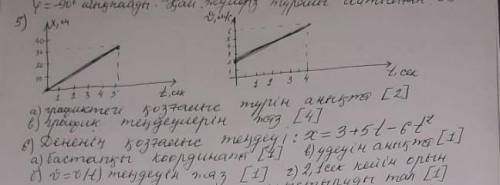 5)
x, м
40
30
20
10
1 2 3 4 5
t, сек
2
1 2 3 4
t, сек
а) графиктегі қозғалыс түрін анықта [2]
в) график теңдеулерін жаз [4]
в) Дененің қозғалыс теңдеуі: x = 3 + 5t - 6t²
а) бастапқы координата [1] в) үдеуін анықта [1]
б) v = v(t) теңдеуін жаз [1] г) 2,1 сек кейін орын
тап [1]